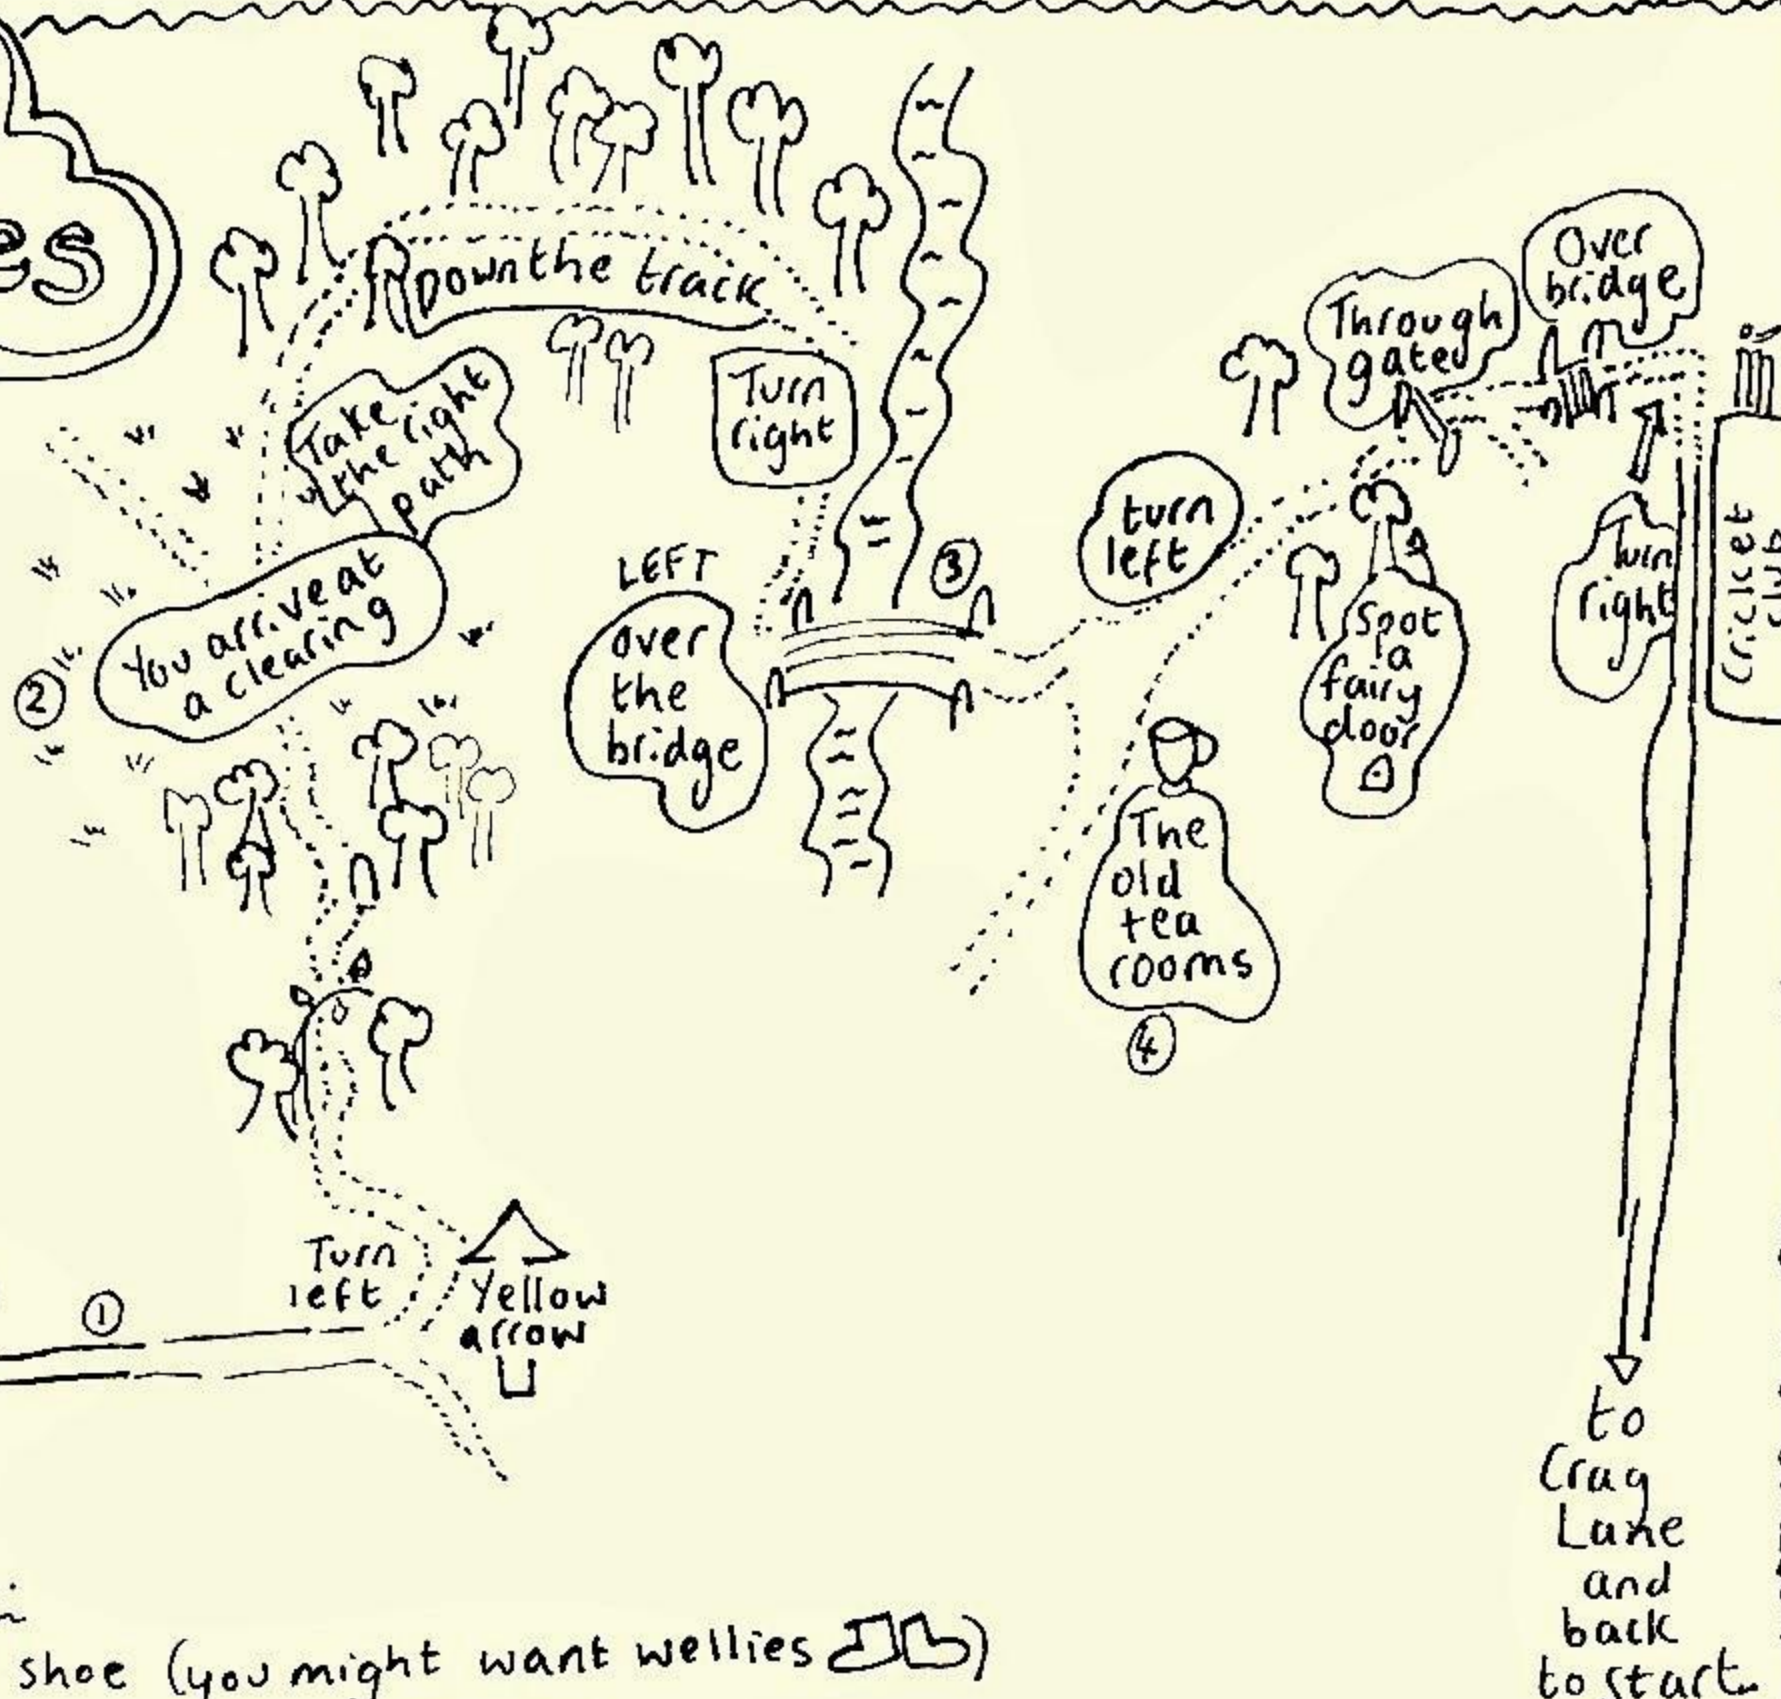 es
Down the track
Take
the right
path
Turn
right
You arrive at
a clearing
2
LEFT
over
the
bridge
3
turn
left
Through
gate
Over
bridge
Spot
a
fairy
door
Turn
right
Cricket
club
The
old
tea
rooms
4
1
Turn
left
Yellow
arrow
to
Crag
Lane
and
back
to start.
shoe (you might want wellies )